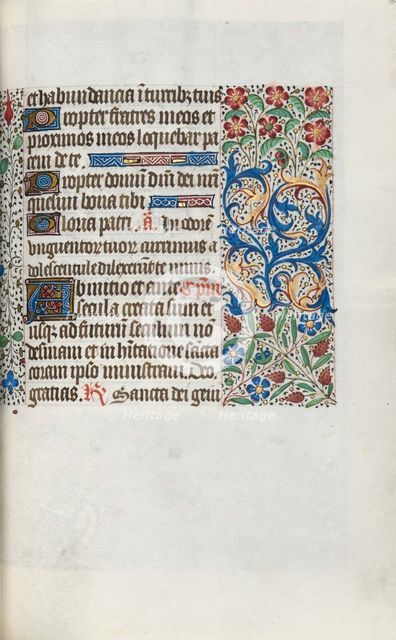 et habundancia i turribz tuis
Propter fratres meos et
proximos meos loquebar pa
cem de te.
Propter domū dñi dei nr̄i
quesiui bona tibi
Gloria patri. ā. In odorē
vnguentor tuor currimus a
dolescentule dilexerūt te nimis.
Ab inicio et ante Cpm̄
secula creata sum et
usqz ad futurū seculum nō
desinam et in habitacione sancta
coram ipso ministraui. Deo
gratias. R Sancta dei geni
Heritage Heritage